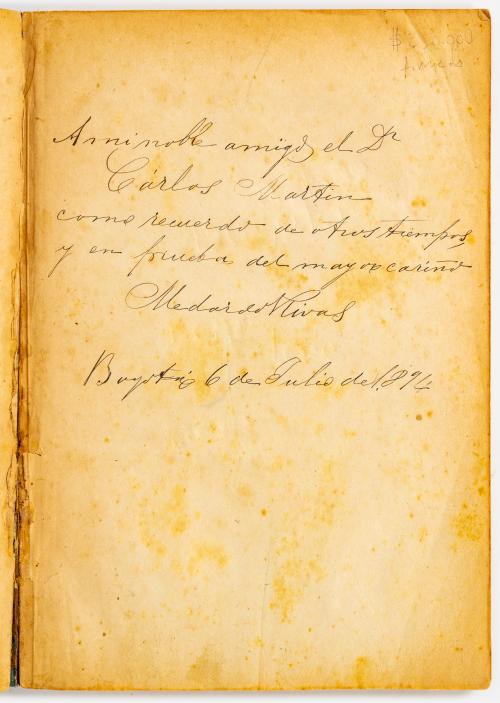 A mi noble amigo el Dr
Cárlos Martin
como recuerdo de otros tiempos
y en prueba del mayor cariño
Medardo Rivas
Bogotá 6 de Julio de 1894